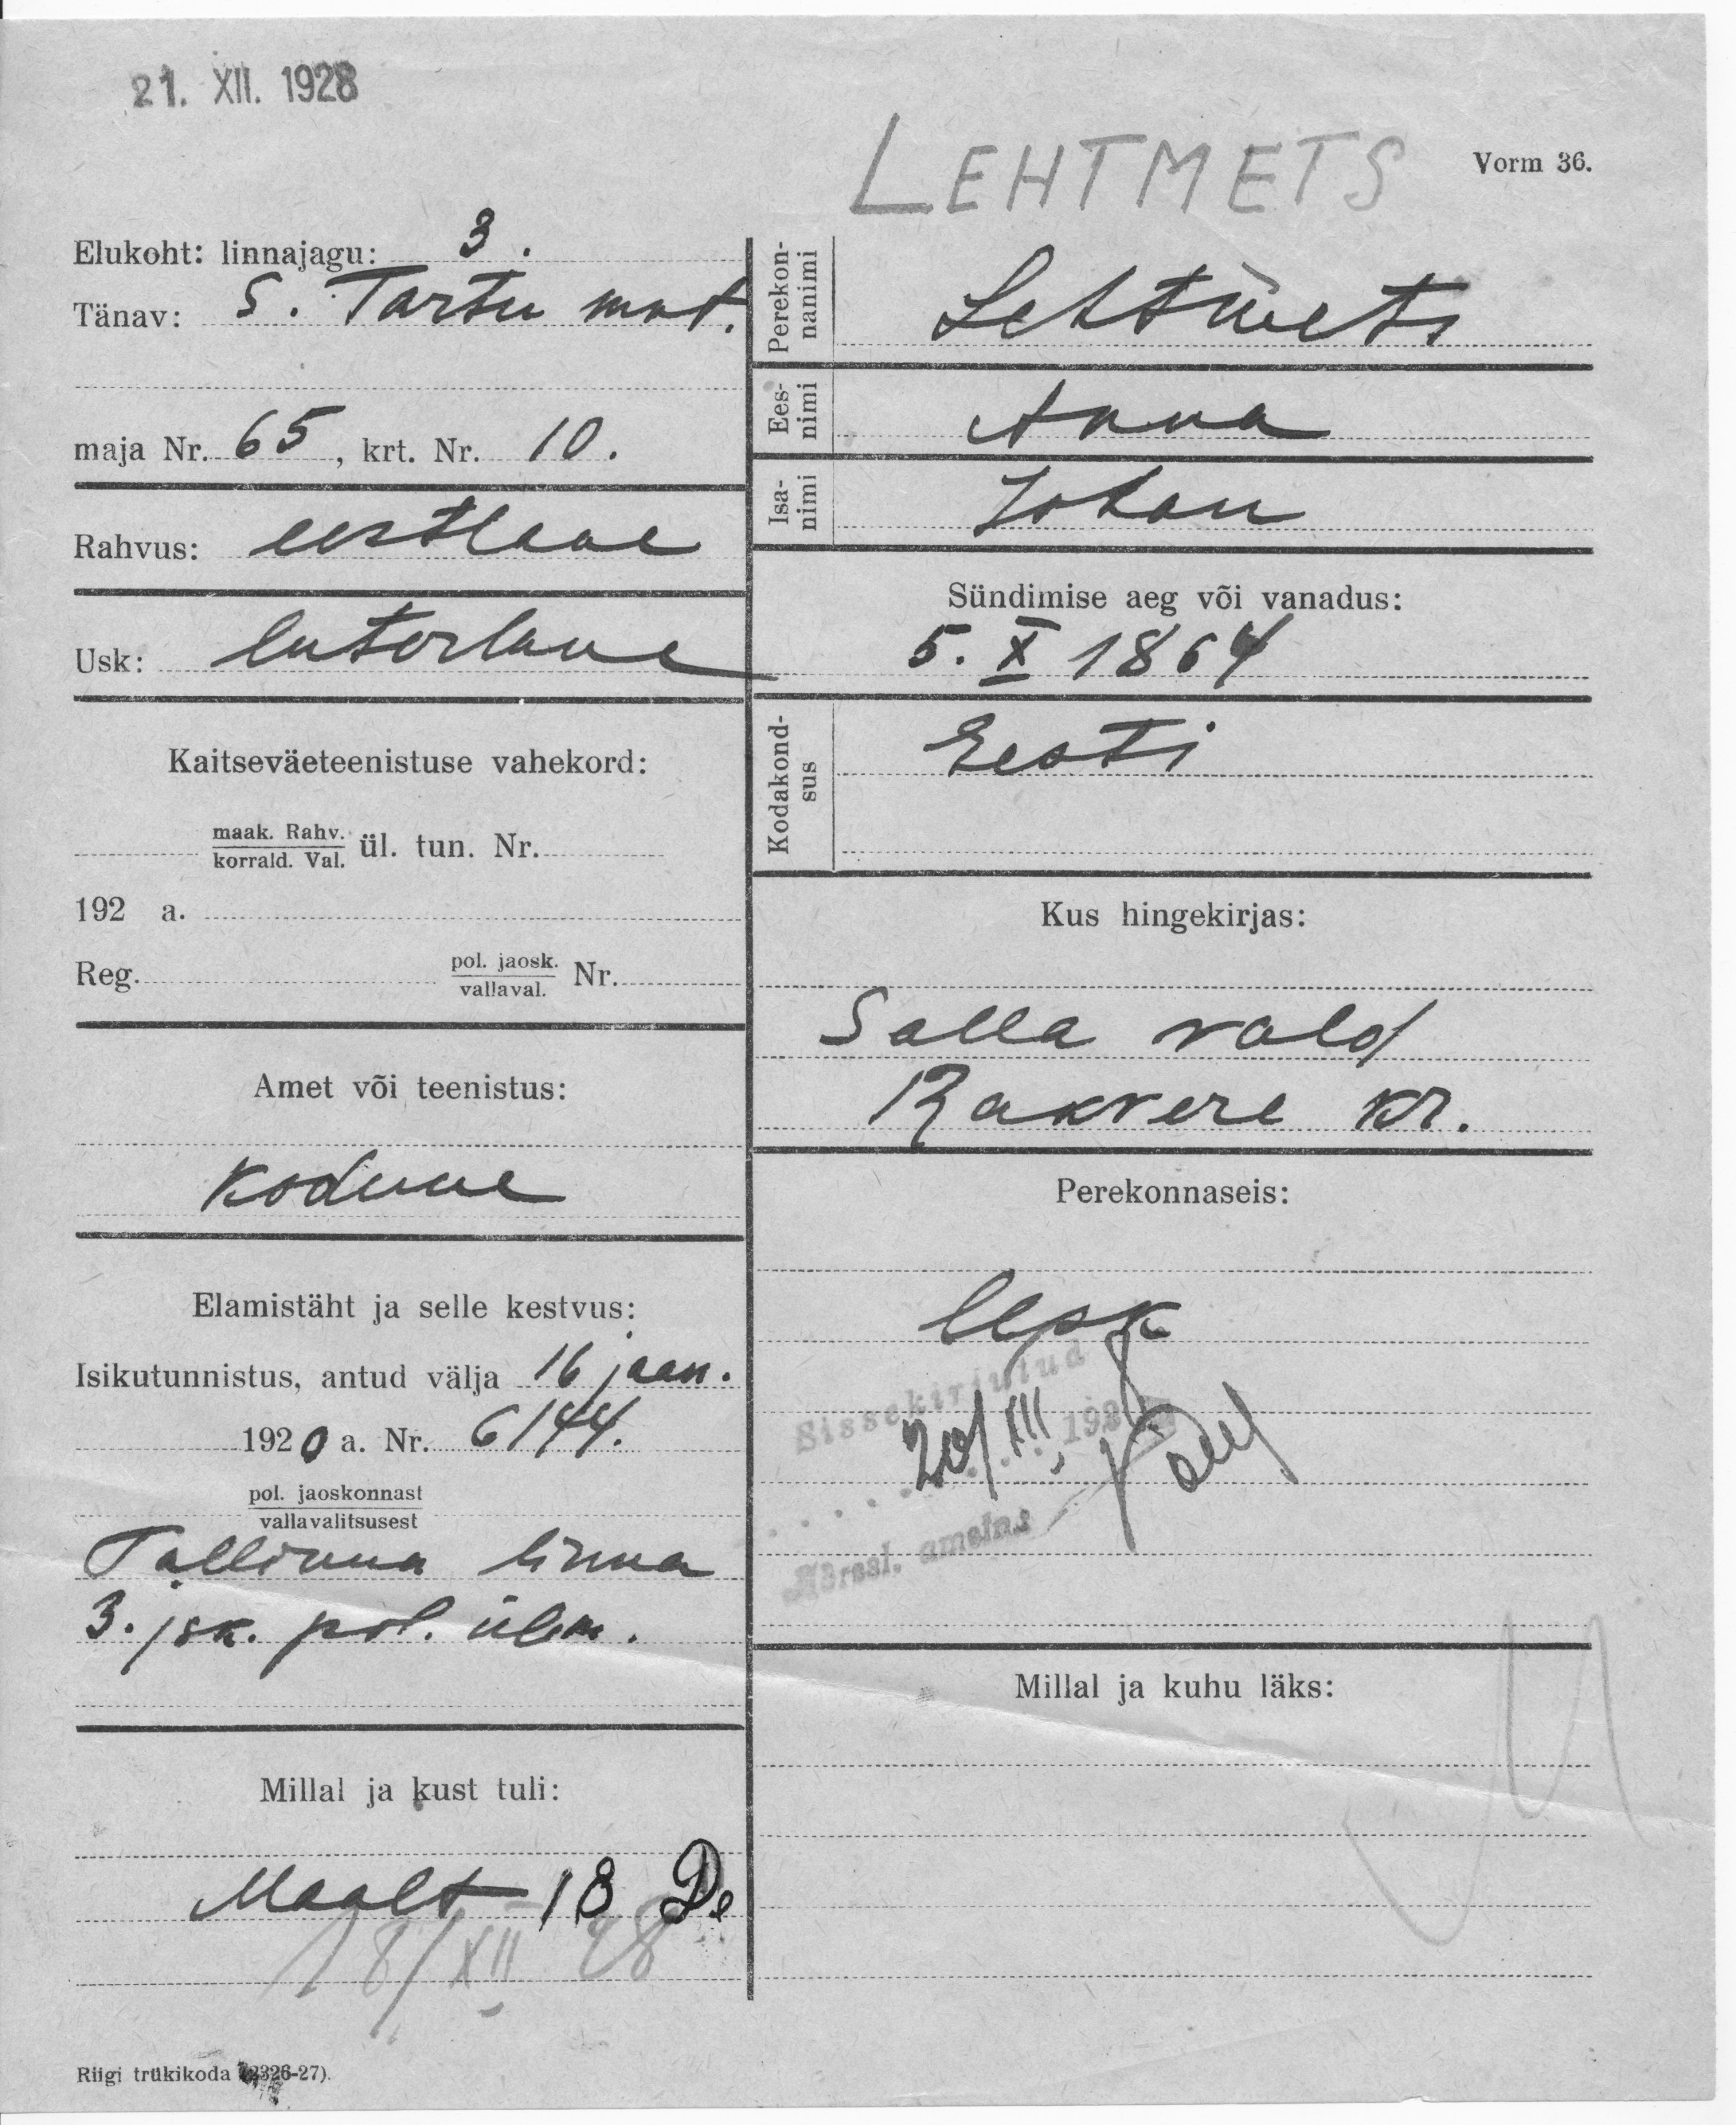 21. XII. 1928
LEHTMETS
Vorm 36.
Elukoht: linnajagu: 3.
Tänav: S. Tartu mnt.
maja Nr. 65, krt. Nr. 10.
Rahvus: eestlane
Usk: luterlane
Kaitseväeteenistuse vahekord:
maak. Rahv.
korrald. Val. ül. tun. Nr.
192 a.
Reg. pol. jaosk. Nr.
vallaval.
Amet või teenistus:
Kodune
Elamistäht ja selle kestvus:
Isikutunnistus, antud välja 16 jaan.
1920 a. Nr. 6144.
pol. jaoskonnast
vallavalitsusest
Tallinna linna
3. jsk. pol. ülem.
Millal ja kust tuli:
Maalt 18 De
18/XII 28
Riigi trükikoda
Perekon-
nanimi
Lehtmets
Ees-
nimi
Anna
Isa-
nimi
Johan
Sündimise aeg või vanadus:
5. X 1864
Kodakond-
sus
Eesti
Kus hingekirjas:
Salla vald
Rakvere kr.
Perekonnaseis:
Lesk
Sissekirjutud
20/XII 192
Adressl. ametns
Millal ja kuhu läks: